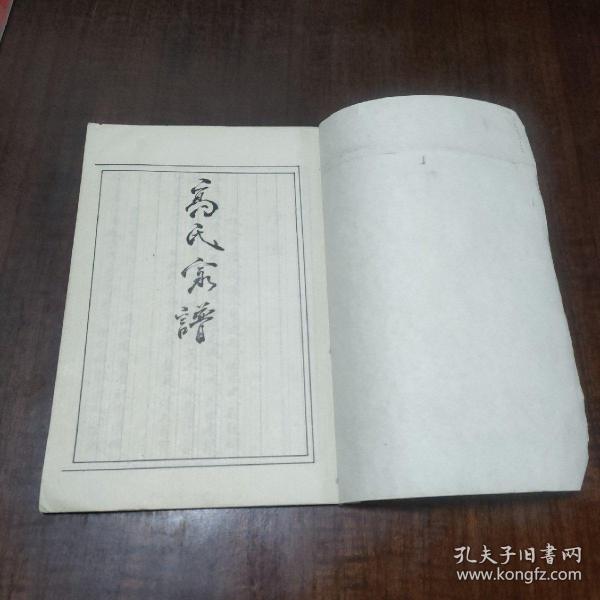 高氏家譜
孔夫子旧書网
www.kongfz.com